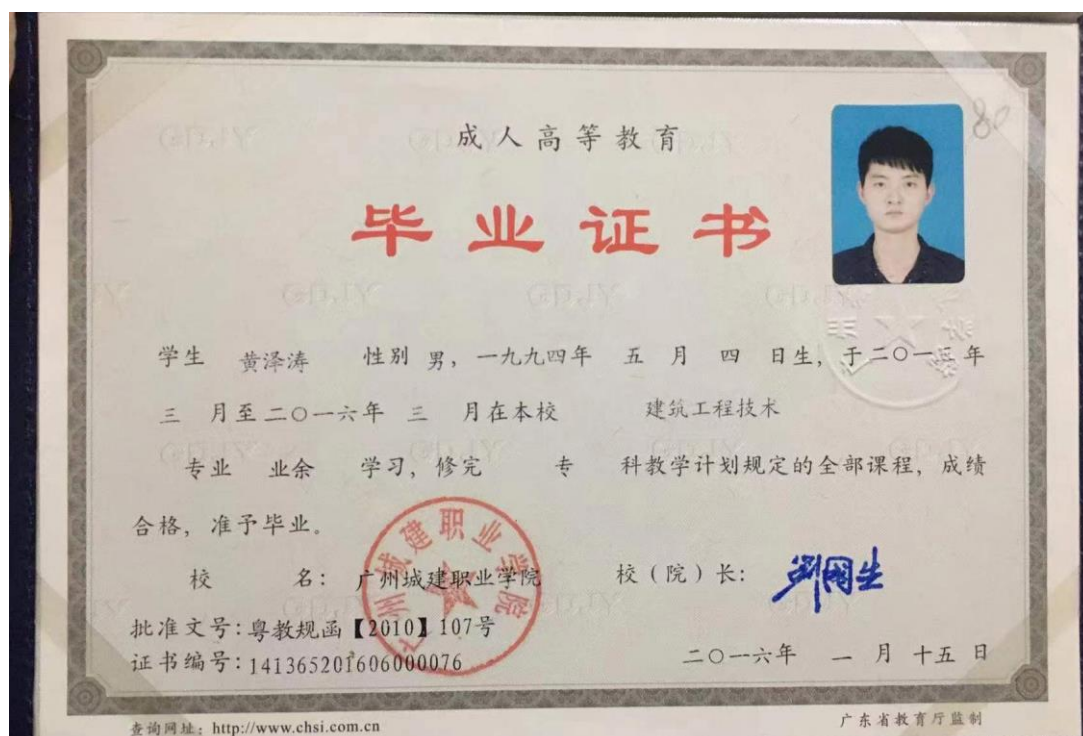 80
成人高等教育
毕业证书
学生 黄泽涛 性别 男，一九九四年 五 月 四 日生，于二〇一三年
三 月至二〇一六年 三 月在本校 建筑工程技术
专业 业余 学习，修完 专 科教学计划规定的全部课程，成绩
合格，准予毕业。
校 名：广州城建职业学院 校（院）长：
广州城建职业学院
批准文号：粤教规函【2010】107号
证书编号：141365201606000076 二〇一六年 一 月 十五 日
查询网址：http://www.chsi.com.cn 广东省教育厅监制